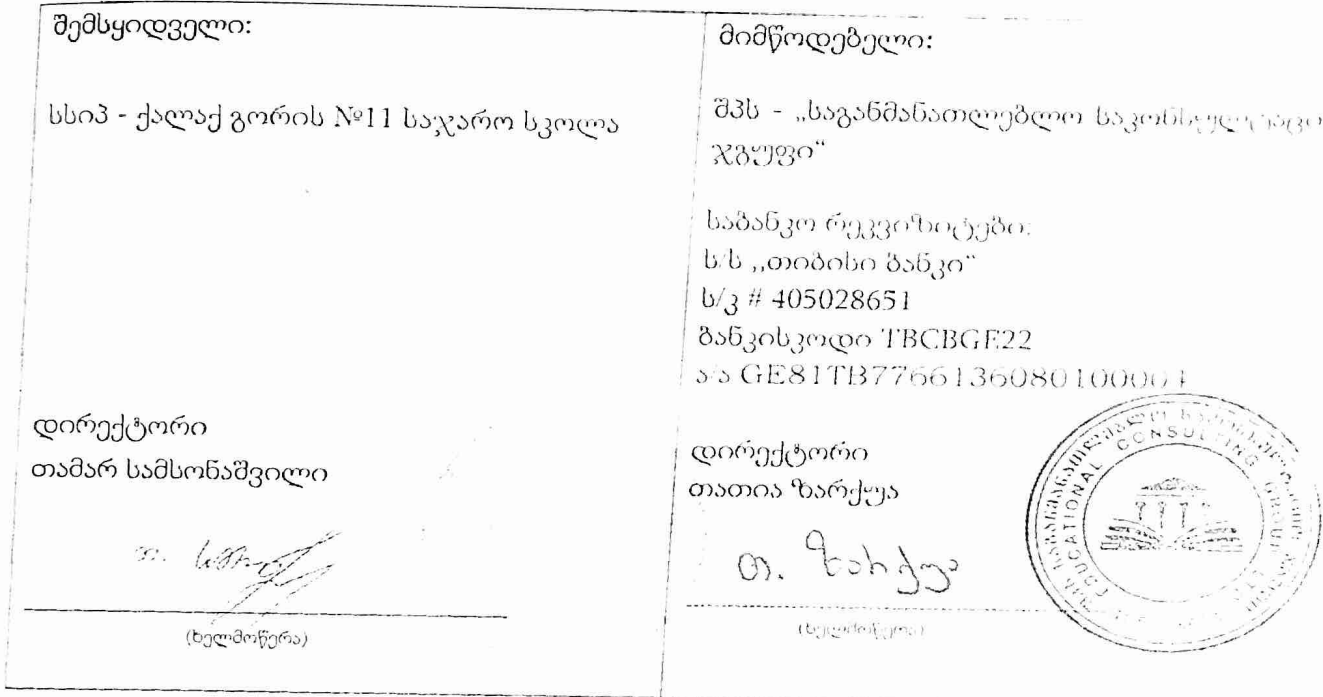 შემსყიდველი:
სსიპ - ქალაქ გორის №11 საჯარო სკოლა
დირექტორი
თამარ სამსონაშვილი
(ხელმოწერა)
მიმწოდებელი:
შპს - „საგანმანათლებლო საკონსულტაციო
ჯგუფი“
საბანკო რეკვიზიტები:
ს/ს ,,თიბისი ბანკი“
ს/კ # 405028651
ბანკისკოდი TBCBGE22
ა/ა GE81TB7766136080100004
დირექტორი
თათია ზარქუა
თ. ზარქუა
(ხელმოწერა)
EDUCATIONAL CONSULTING GROUP LTD